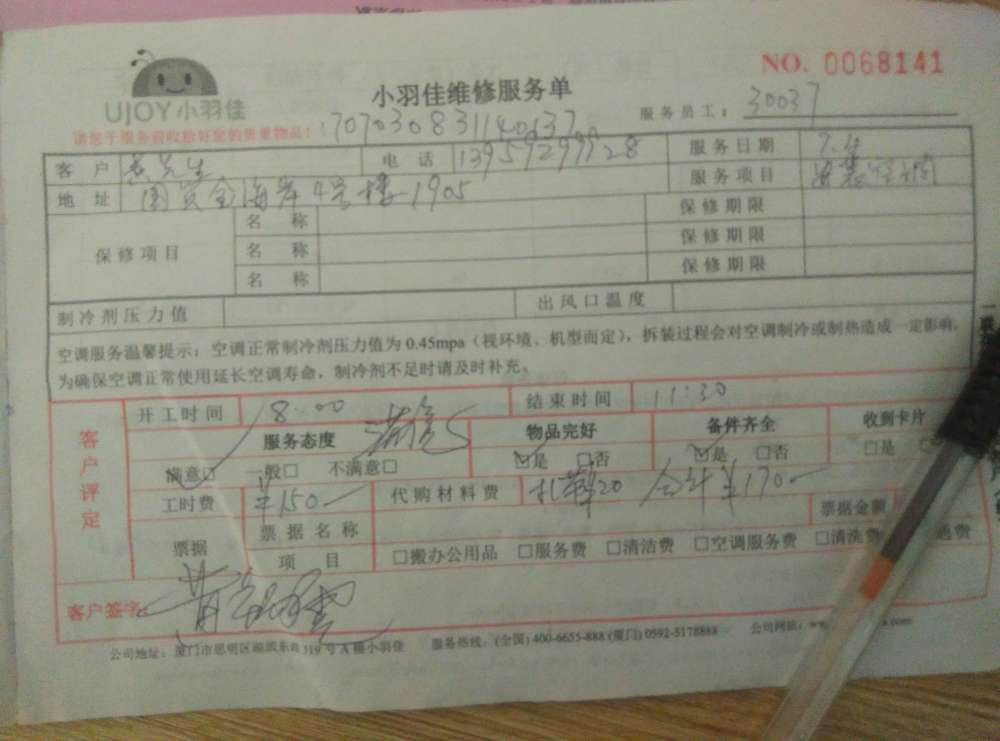 NO. 0068141
UJOY小羽佳
小羽佳维修服务单
服务员工： 30037
请您于服务前收拾好您的贵重物品！
客户 先生 电话 服务日期 7.4
地址 国贸金海岸4号楼-1905 服务项目
保修项目 名称 保修期限
名称 保修期限
名称 保修期限
制冷剂压力值 出风口温度
空调服务温馨提示：空调正常制冷剂压力值为 0.45mpa（视环境、机型而定），拆装过程会对空调制冷或制热造成一定影响，
为确保空调正常使用延长空调寿命，制冷剂不足时请及时补充。
客户评定
开工时间 8:00 结束时间 11:30
服务态度 物品完好 备件齐全 收到卡片
满意□ 一般□ 不满意□ ☑是 □否 ☑是 □否 □是
工时费 ¥150- 代购材料费 20 合计¥170-
票据 票据名称 票据金额
项目 □搬办公用品 □服务费 □清洁费 □空调服务费 □清洗费 通费
客户签字：
公司地址：厦门市思明区 319号A幢小羽佳 服务热线：(全国) 400-6655-888 (厦门) 0592-5178888 公司网址：